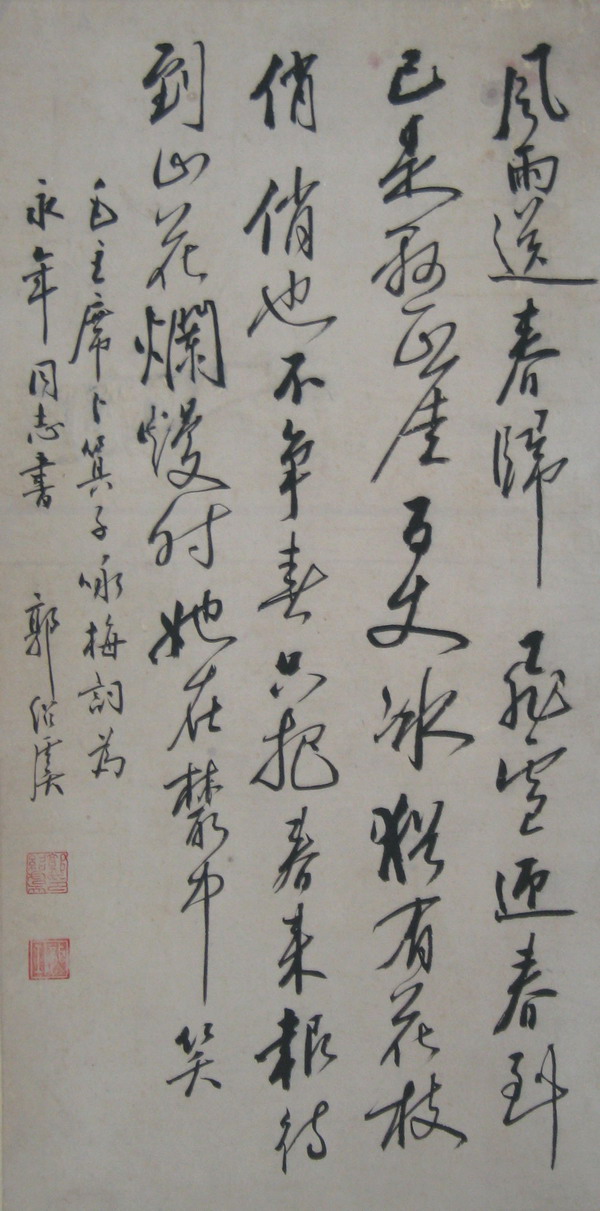 風雨送春歸 飛雪迎春到
已是懸崖百丈冰猶有花枝
俏 俏也不爭春只把春來報待
到山花爛熳时她在叢中笑
毛主席卜算子咏梅詞為
永年同志書 郭紹虞